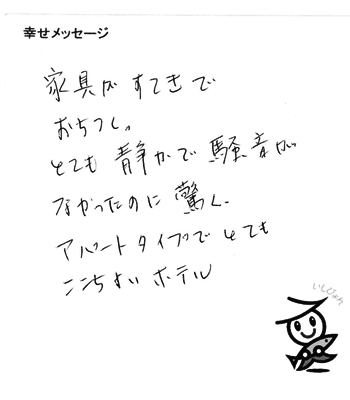 幸せメッセージ
家具が すてきで
おちつく。
とても 静かで 騒音が
なかったのに 驚く。
アパートタイプで とても
ここちよい ホテル